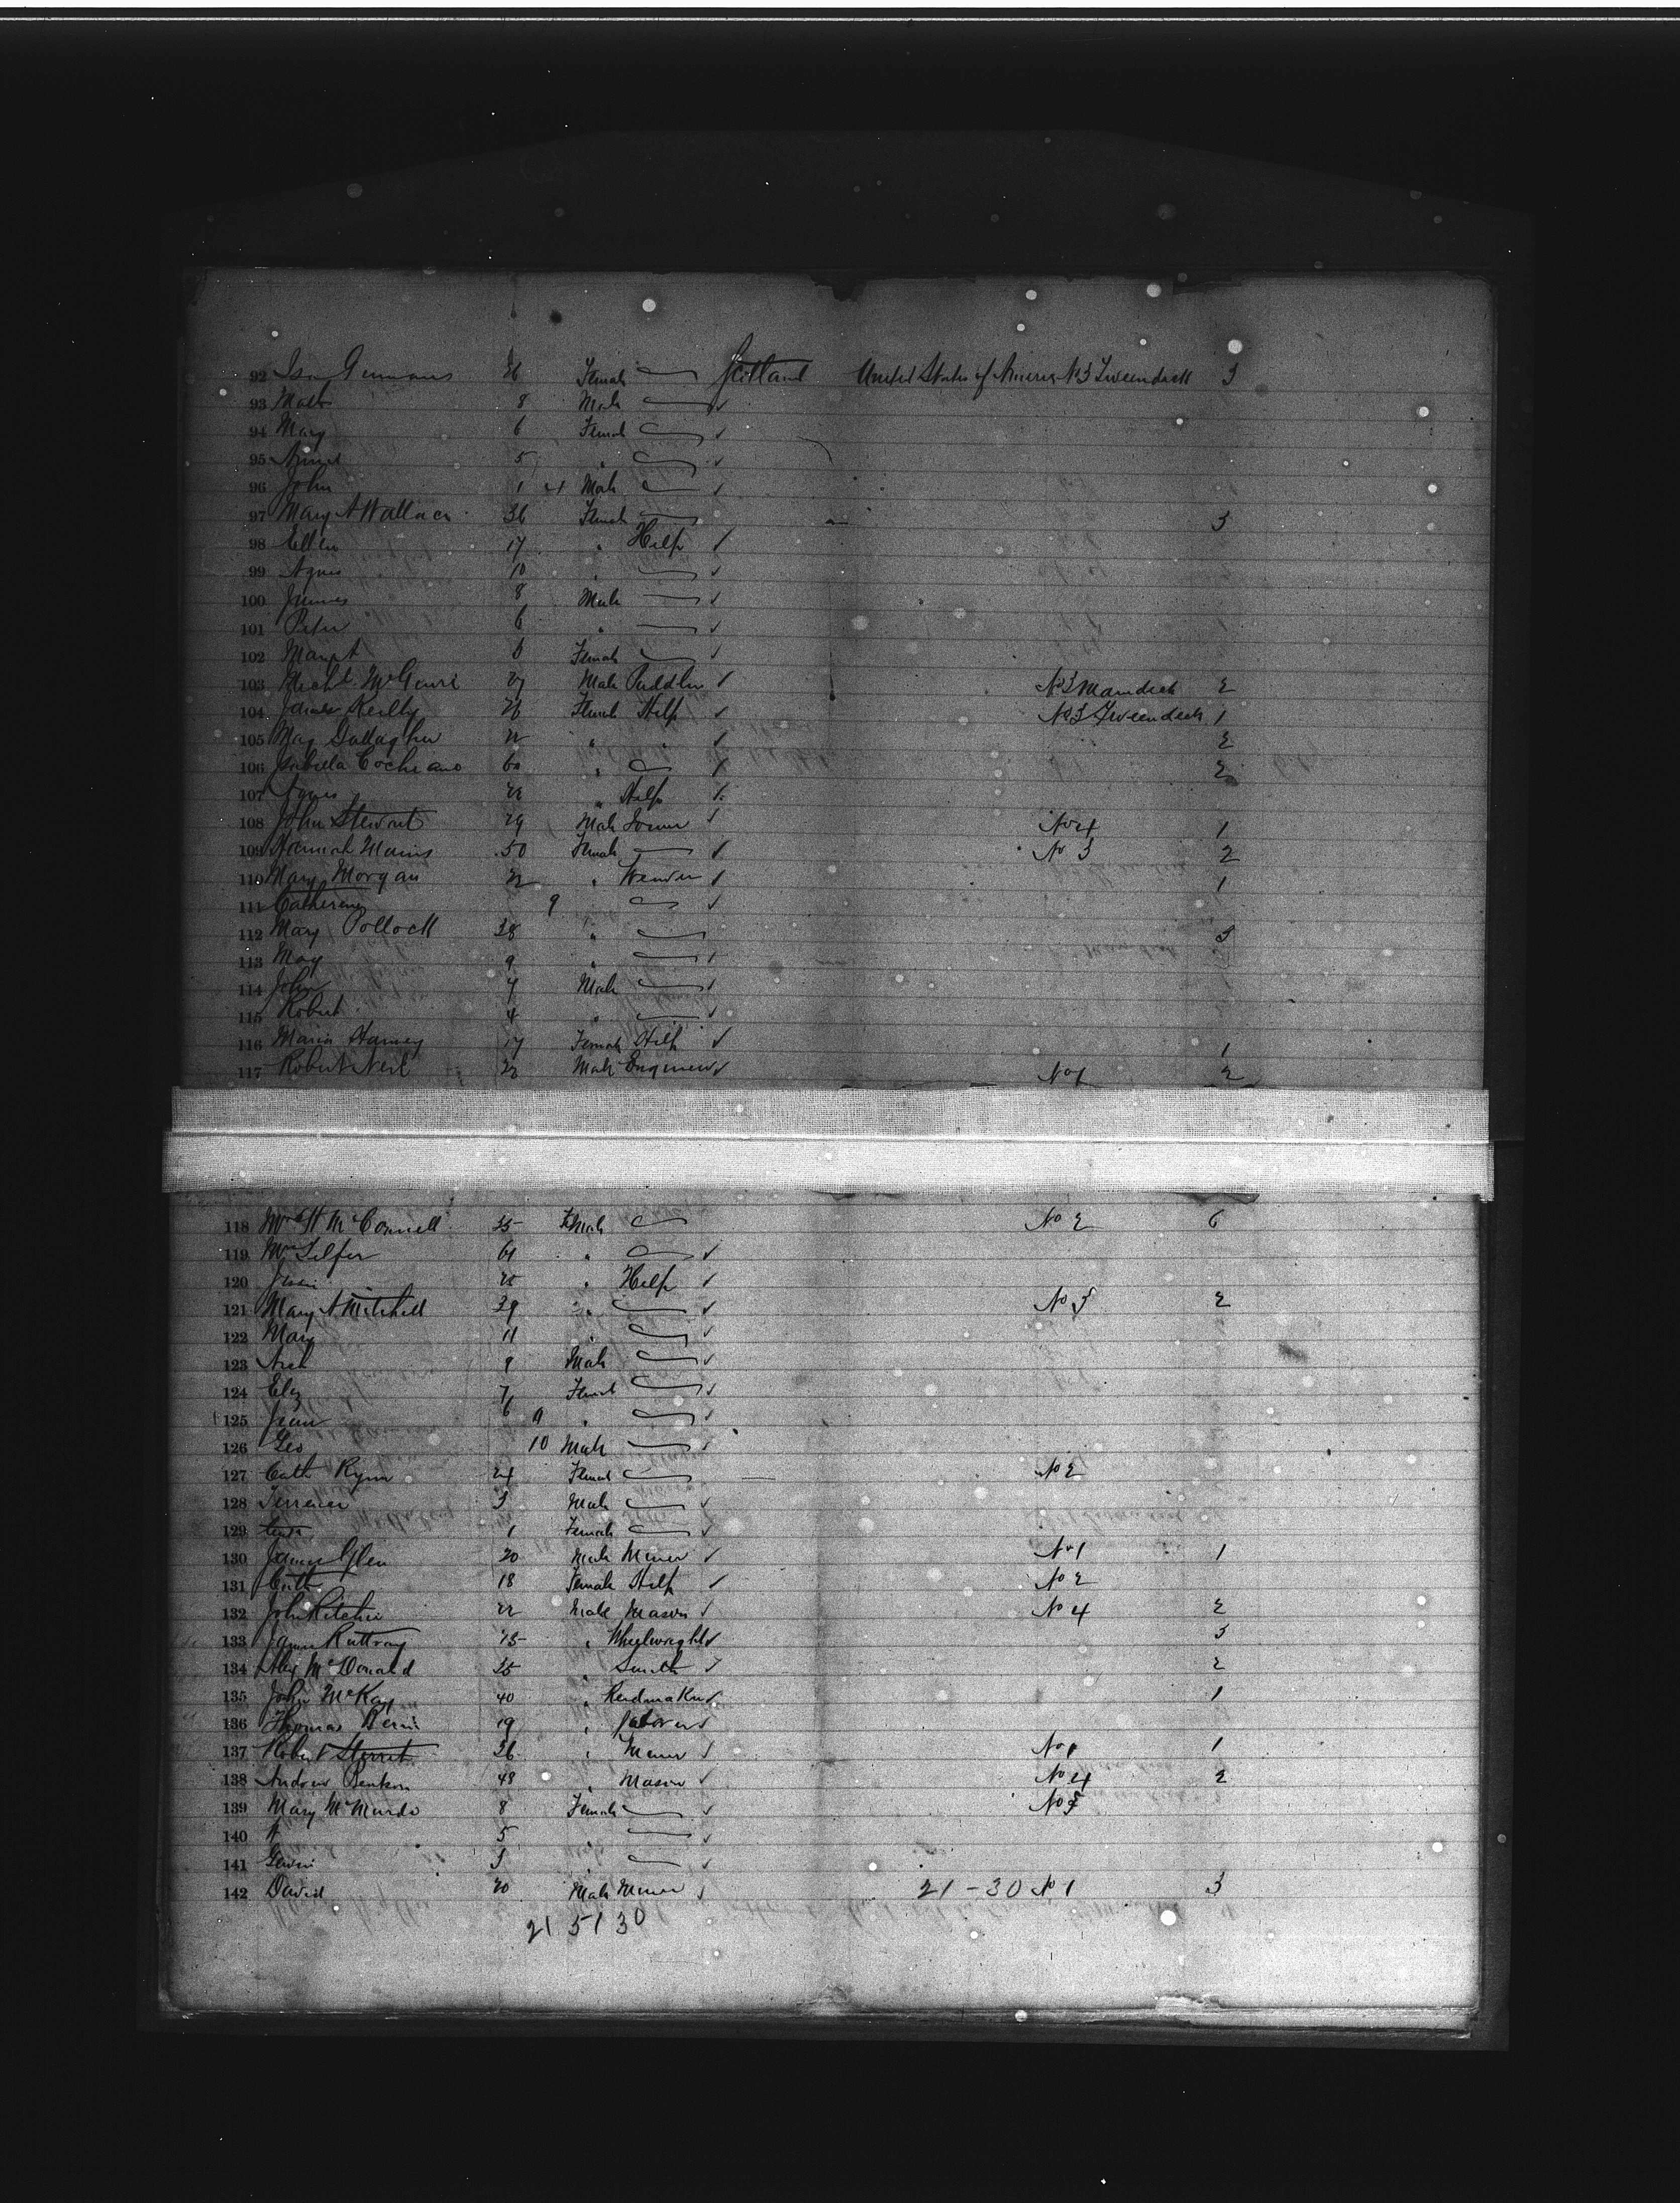 92 Female Scotland United States of America No 3 Tweendeck 3
93 8 Male
94 Mary 6 Female
95 5 "
96 John 1 4 Male
97 Mary A Wallace 36 Female 3
98 Ellen 17 " Help
99 Agnes 10 "
100 James 8 Male
101 Peter 6 "
102 Margt 6 Female
103 27 Male Puddler No 3 Maindeck 2
104 Reilly 26 Female Help No 3 Tweendeck 1
105 Mag Gallagher 22 " " 2
106 Isabella Cochrane 60 " 2
107 22 " Help
108 John Stewart 29 Male Joiner No 4 1
109 Hannah 50 Female No 3 2
110 Mary Morgan 22 " Weaver 1
111 Catherine 9
112 Mary Pollock 38 " 3
113 May 9 "
114 John 7 Male
115 Robert 4 "
116 Maria Harvey 17 Female Help 1
117 Robert Neil 22 Male Engineer No 1 2
118 Mrs H McConnell 35 Female No 2 6
119 Mrs Telfer 61 "
120 25 " Help
121 Mary A Mitchell 39 " No 3 2
122 Mary 11 "
123 Arch 9 Male
124 Eliz 7 Female
125 Jean 6 "
126 Geo 10 Male
127 Cath 24 Female No 2
128 Terrence 3 Male
129 1 Female
130 James Glen 20 Male Miner No 1 1
131 Cath 18 Female Help No 2
132 John Ritchie 22 Male Mason No 4 2
133 James Rattray " Wheelwright 3
134 Alex McDonald 35 " Smith 2
135 John McKay 40 " Reedmaker 1
136 Thomas 19 " Laborer
137 Robert Sterret 36 " Miner No 1 1
138 Andrew 48 " Mason No 4 2
139 Mary McMurdo 8 Female No
140 5 "
141 3 "
142 David 20 Male Miner 21-30 No 1 3
21 51 30